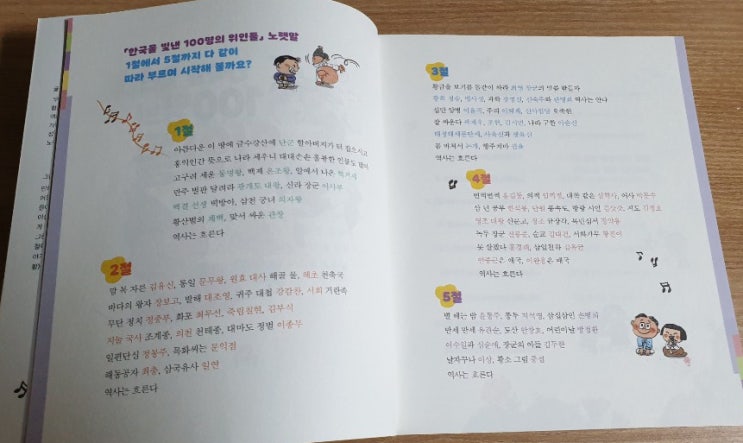 『한국을 빛낸 100명의 위인들』 노랫말
1절에서 5절까지 다 같이
따라 부르며 시작해 볼까요?
1절
아름다운 이 땅에 금수강산에 단군 할아버지가 터 잡으시고
홍익인간 뜻으로 나라 세우니 대대손손 훌륭한 인물도 많아
고구려 세운 동명왕, 백제 온조왕, 알에서 나온 혁거세
만주 벌판 달려라 광개토 대왕, 신라 장군 이사부
백결 선생 떡방아, 삼천 궁녀 의자왕
황산벌의 계백, 맞서 싸운 관창
역사는 흐른다
2절
말 목 자른 김유신, 통일 문무왕, 원효 대사 해골 물, 혜초 천축국
바다의 왕자 장보고, 발해 대조영, 귀주 대첩 강감찬, 서희 거란족
무단 정치 정중부, 화포 최무선, 죽림칠현, 김부식
지눌 국사 조계종, 의천 천태종, 대마도 정벌 이종무
일편단심 정몽주, 목화씨는 문익점
해동공자 최충, 삼국유사 일연
역사는 흐른다
3절
황금을 보기를 돌같이 하라 최영 장군의 말씀 받들자
황희 정승, 맹사성, 과학 장영실, 신숙주와 한명회 역사는 안다
십만 양병 이율곡, 주리 이퇴계, 신사임당 오죽헌
잘 싸운다 곽재우, 조헌, 김시민, 나라 구한 이순신
태정태세문단세, 사육신과 생육신
몸 바쳐서 논개, 행주치마 권율
역사는 흐른다
4절
번쩍번쩍 홍길동, 의적 임꺽정, 대쪽 같은 삼학사, 어사 박문수
삼 년 공부 한석봉, 단원 풍속도, 방랑 시인 김삿갓, 지도 김정호
영조 대왕 신문고, 정조 규장각, 목민심서 정약용
녹두 장군 전봉준, 순교 김대건, 서화가무 황진이
못 살겠다 홍경래, 삼일천하 김옥균
안중근은 애국, 이완용은 매국
역사는 흐른다
5절
별 헤는 밤 윤동주, 종두 지석영, 삼십삼인 손병희
만세 만세 유관순, 도산 안창호, 어린이날 방정환
이수일과 심순애, 장군의 아들 김두한
날자꾸나 이상, 황소 그림 중섭
역사는 흐른다